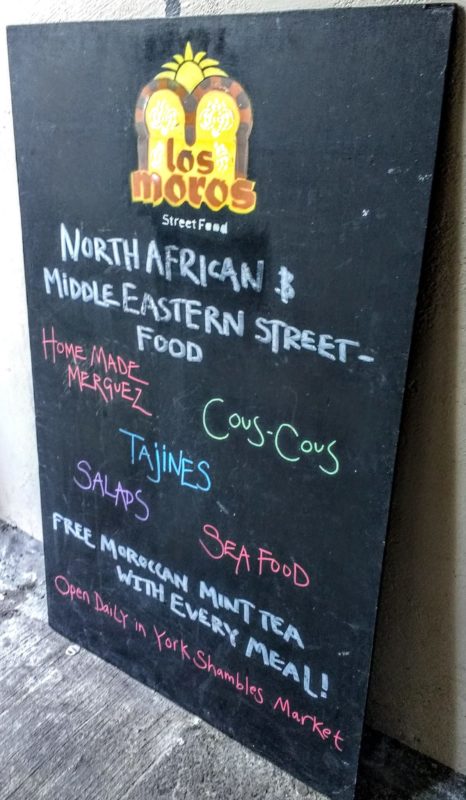 los
moros
Street Food
NORTH AFRICAN &
MIDDLE EASTERN STREET-
FOOD
HOME MADE
MERGUEZ
COUS-COUS
TAJINES
SALADS
SEA FOOD
FREE MOROCCAN MINT TEA
WITH EVERY MEAL!
Open Daily in York Shambles Market